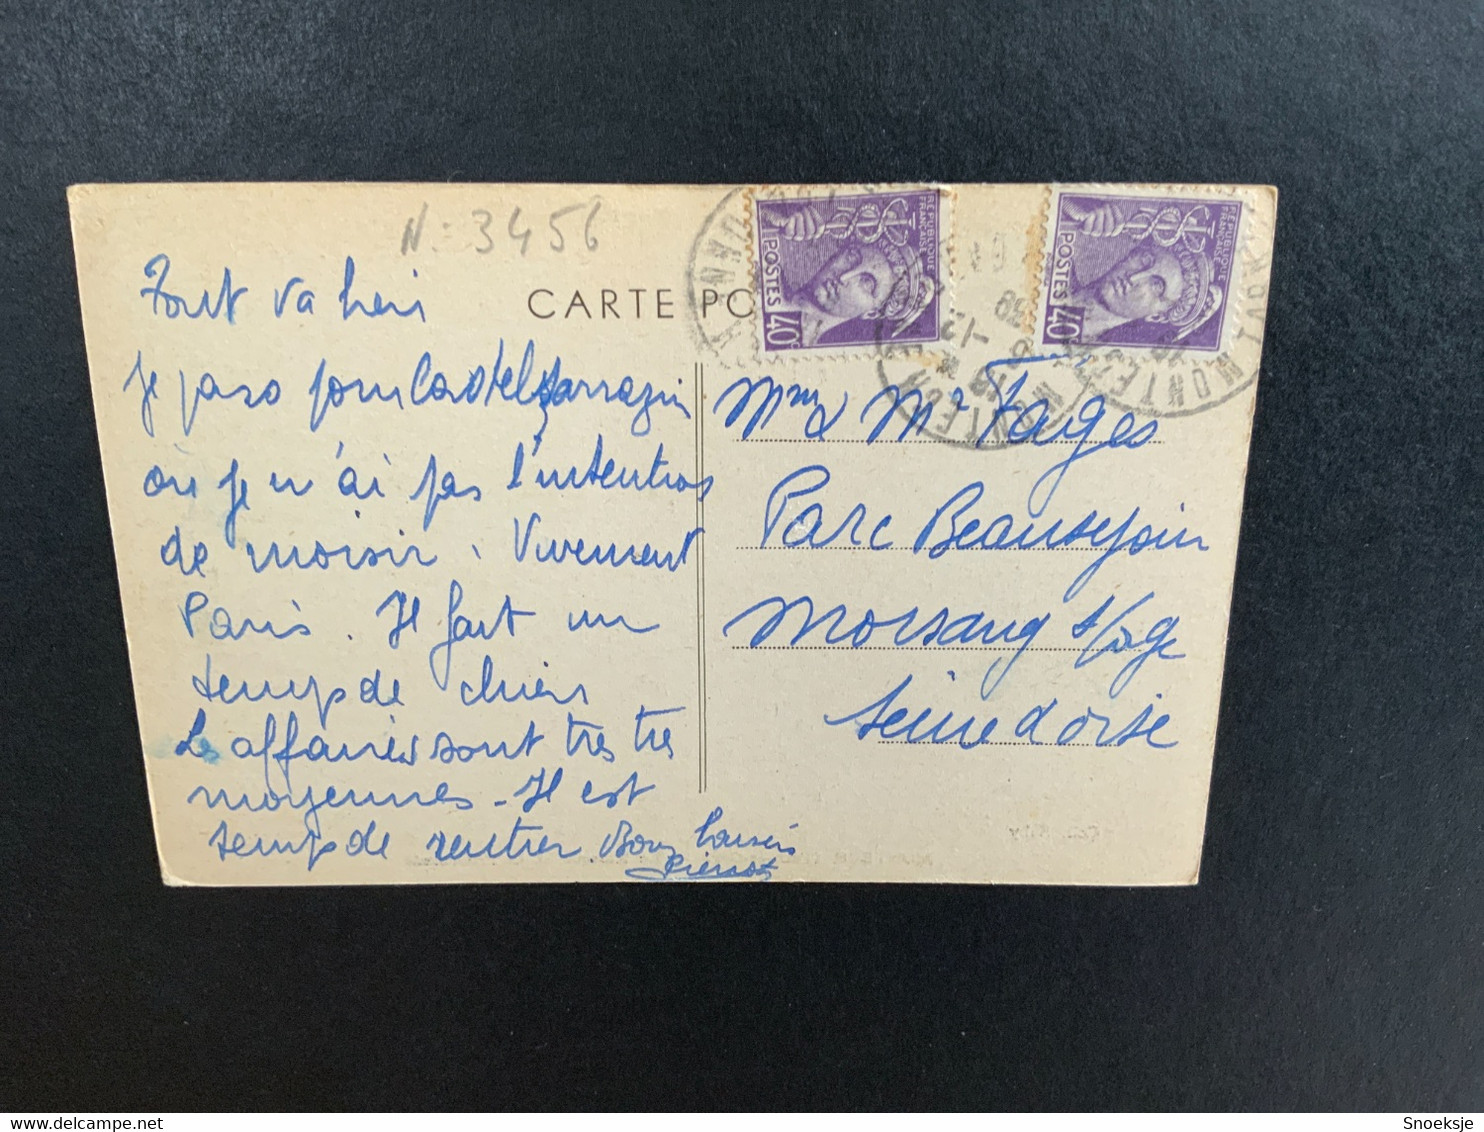 N: 3456
CARTE PO
Tout va bien
Je pars pour Castelsarrazin
où je n'ai pas l'intention
de moisir. Vivement
Paris. Il fait un
temps de chien
Les affaires sont très très
moyennes - Il est
temps de rentrer Bons baisers
Pierrot
RÉPUBLIQUE
FRANÇAISE
POSTES
40c
RÉPUBLIQUE
FRANÇAISE
POSTES
40c
Mme & Mr Fages
Parc Beausejour
Morsang s/Orge
Seine d'Oise
Snoeksje